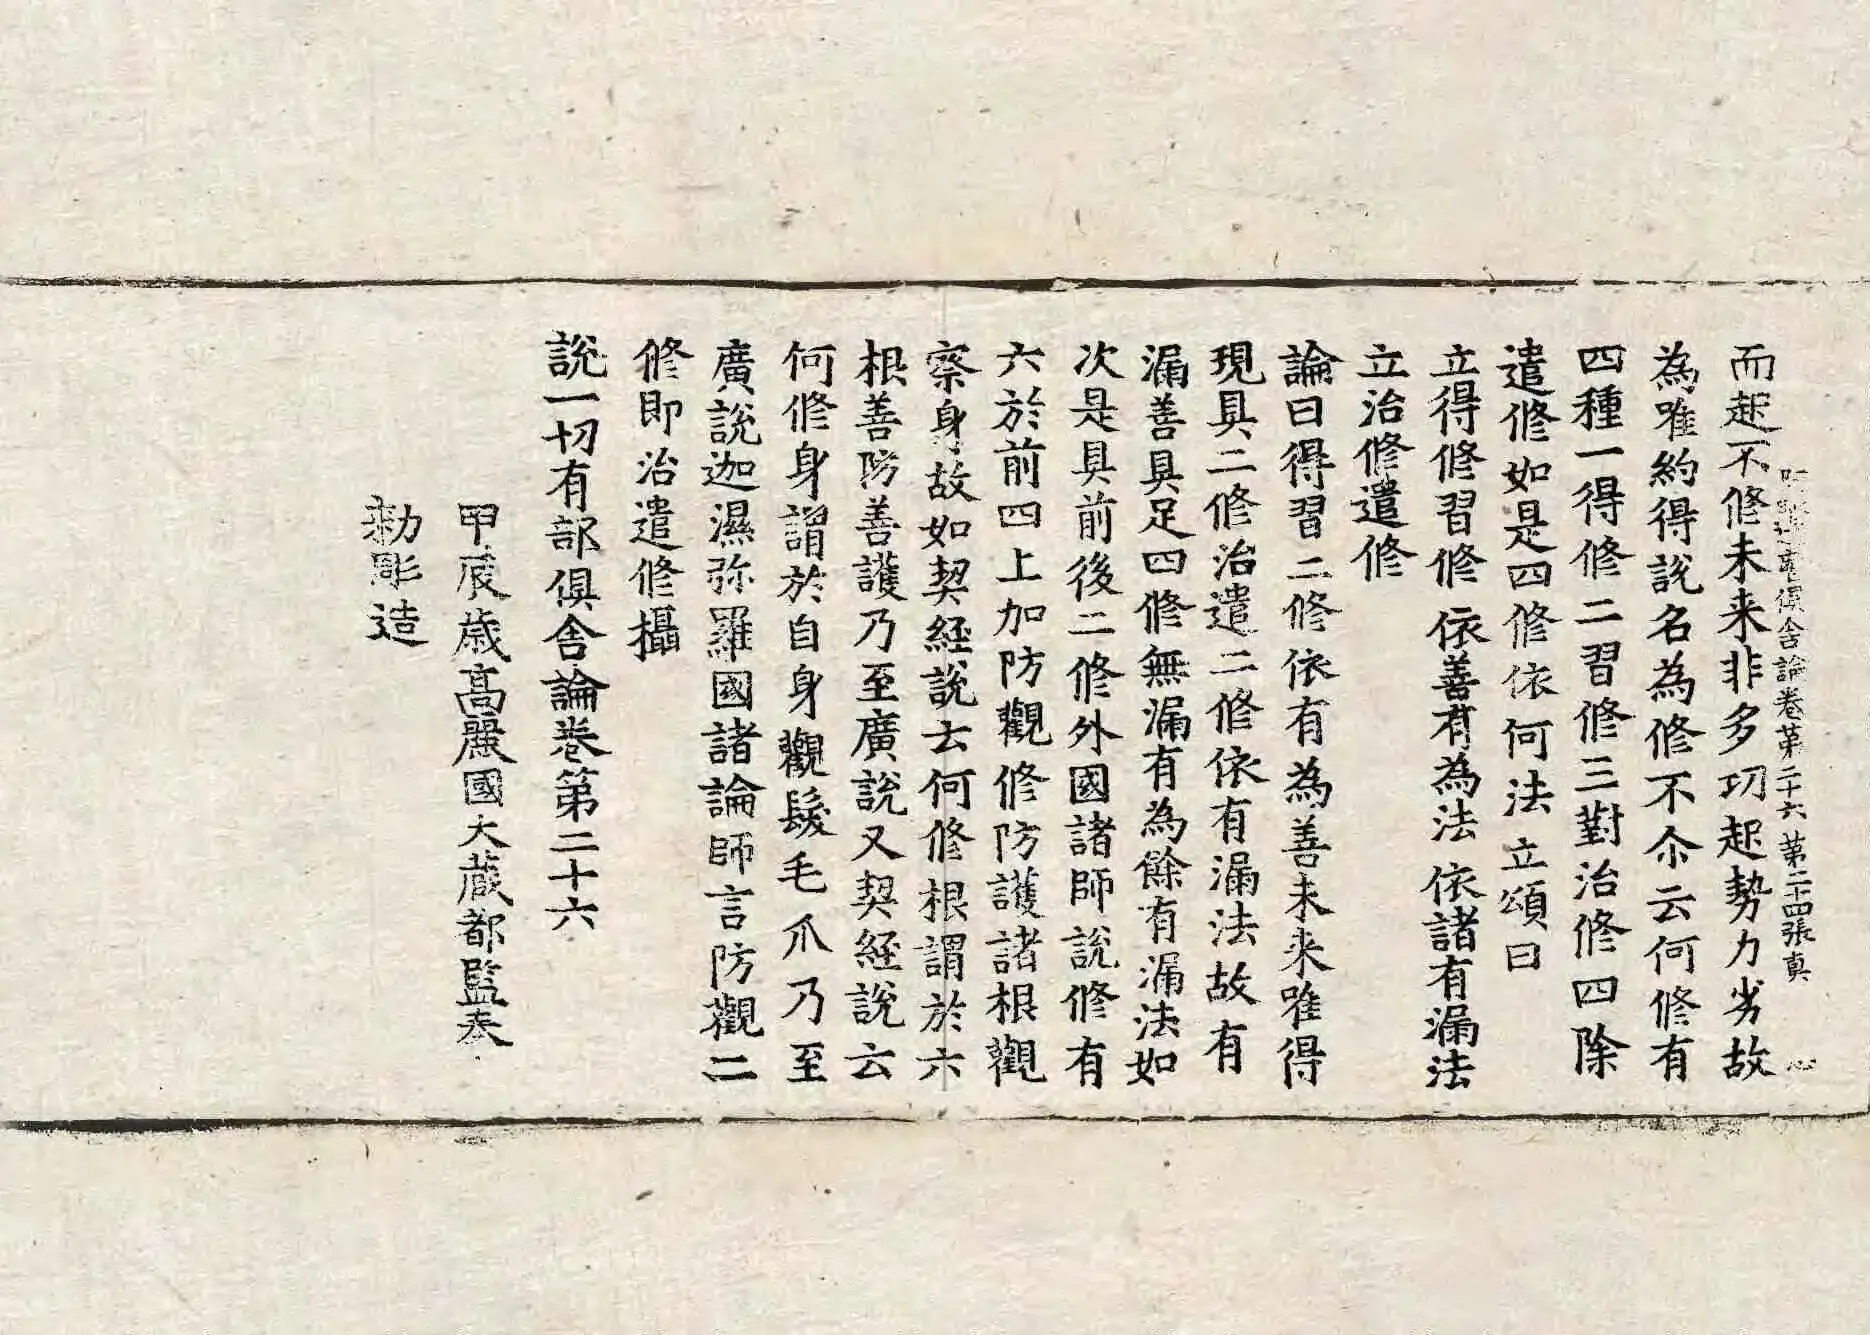 俱舍論卷第二十六 第二十四張 真 心
而起不修未来非多功起勢力劣故
為唯約得說名為修不尒云何修有
四種一得修二習修三對治修四除
遣修如是四修依何法立頌曰
立得修習修 依善有為法 依諸有漏法
立治修遣修
論曰得習二修依有為善未来唯得
現具二修治遣二修依有漏法故有
漏善具足四修無漏有為餘有漏法如
次是具前後二修外國諸師說修有
六於前四上加防觀修防護諸根觀
察身故如契経說去何修根謂於六
根善防善護乃至廣說又契経說云
何修身謂於自身觀髮毛爪乃至
廣說迦濕弥羅國諸論師言防觀二
修即治遣修攝
說一切有部俱舍論卷第二十六
甲辰歳髙麗國大蔵都監奉
勅彫造